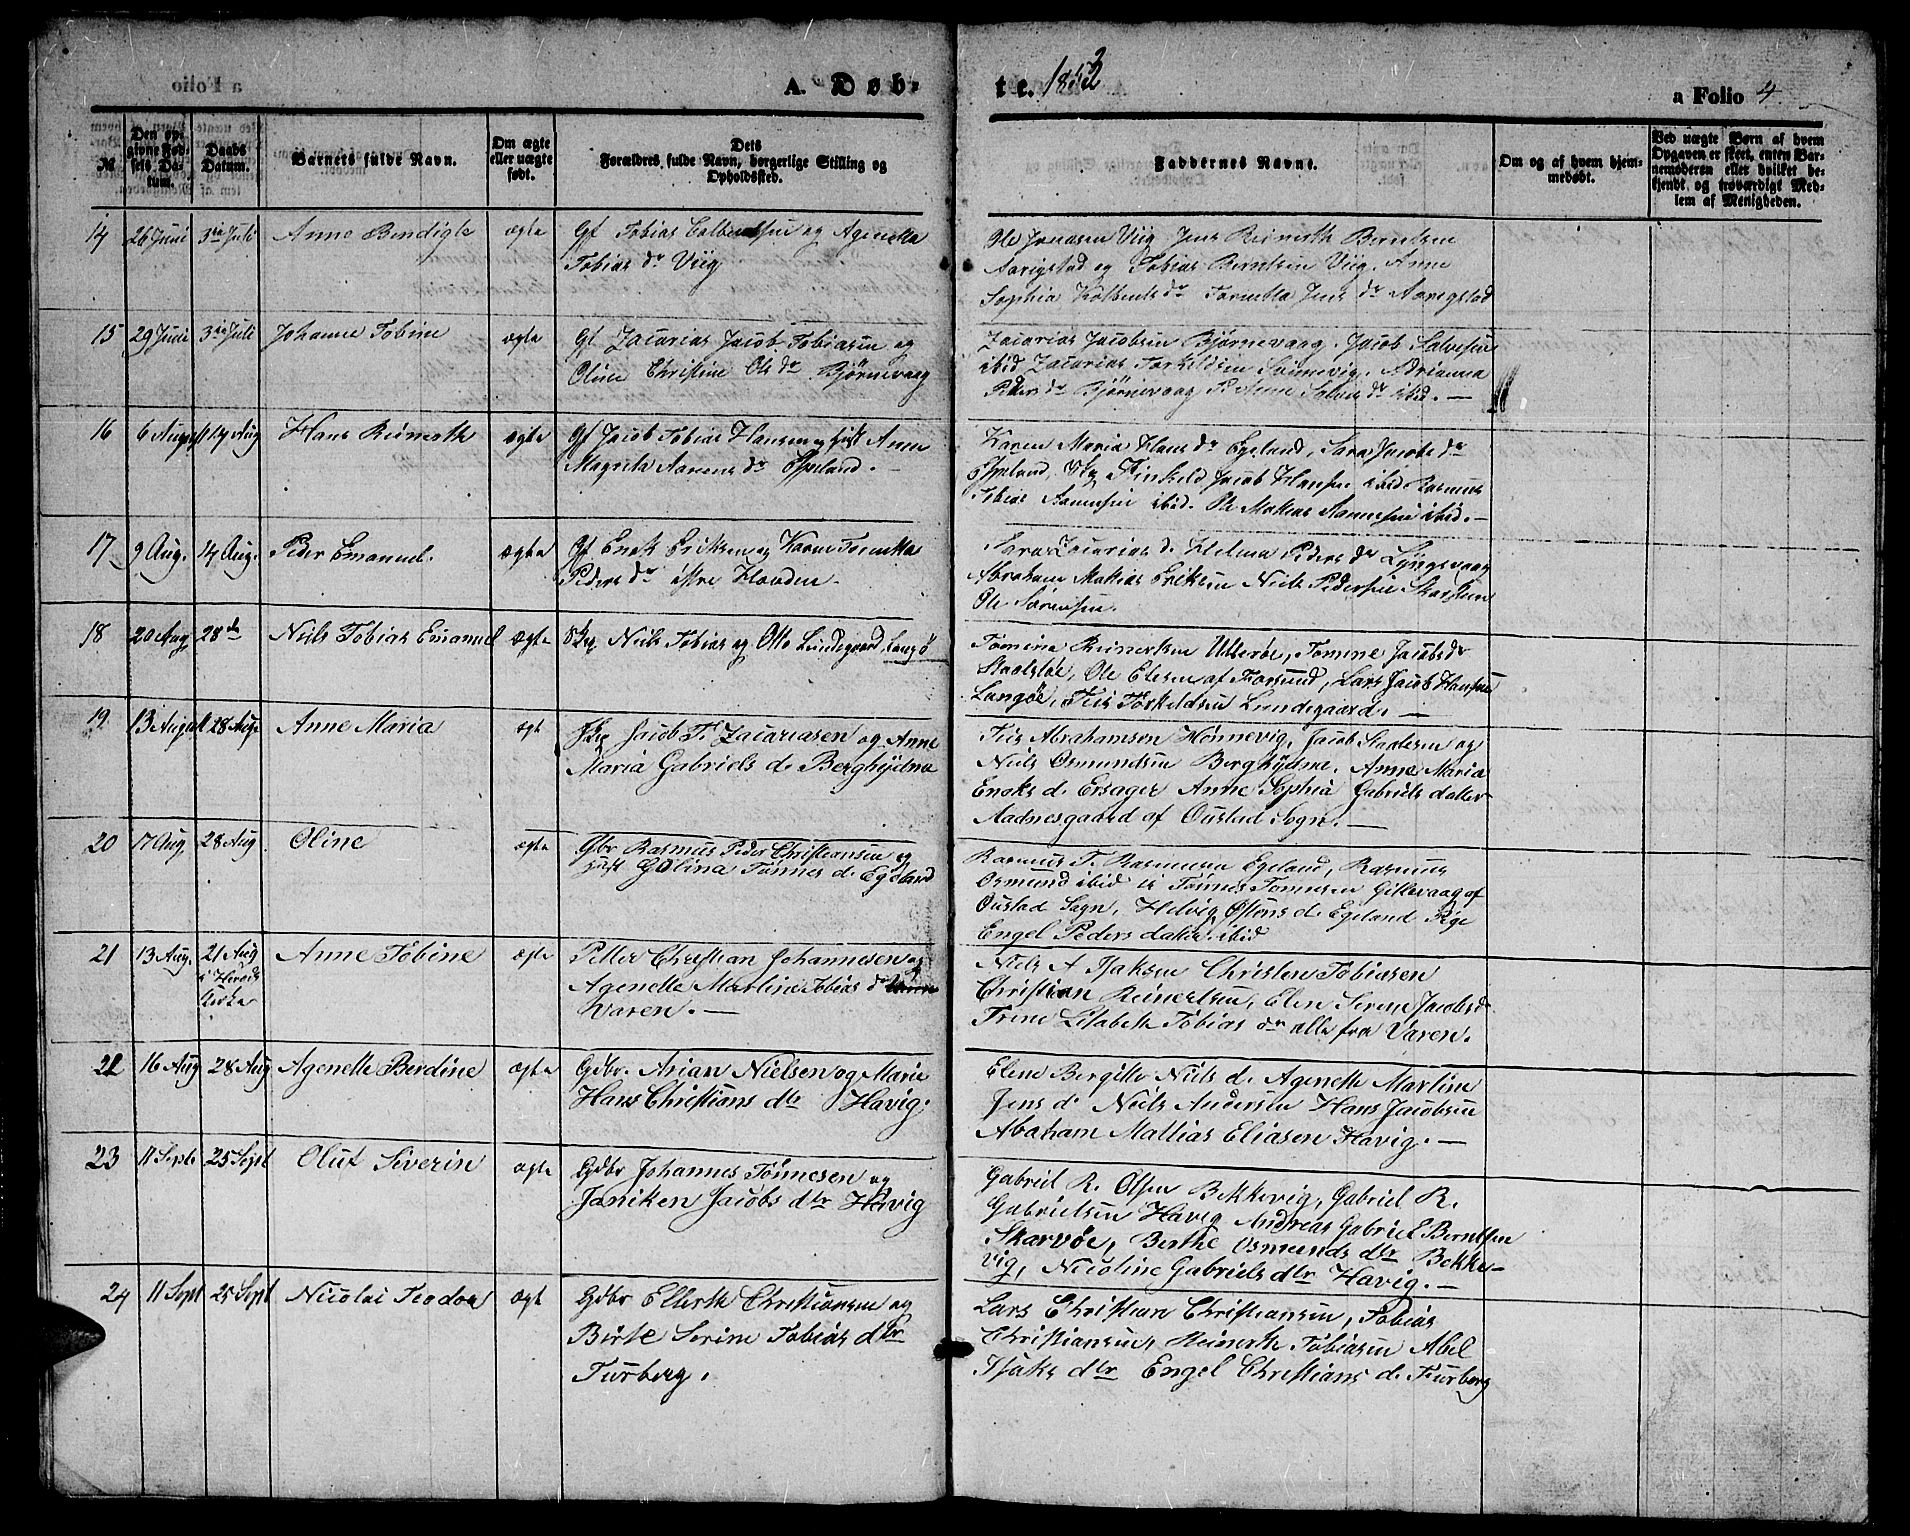 A. Døb-
te. 1853
a Folio 4.
№
Den opgivne Fødsels Datum.
Daabs Datum.
Barnets fulde Navn.
Om ægte eller uægte født.
Dets
Forældres fulde Navn, borgerlige Stilling og
Opholdssted.
Faddernes Navne.
Om og af hvem hjemmedøbt.
Ved uægte Børn af hvem
Opgaven er skeet, enten Barnemoderen
eller hvilket bekjendt
og troværdigt Medlem
af Menigheden.
14 26 Juni 3die Juli Anne Bendigte ægte Gf Tobias og Agenetta
Tobias dr Viig
Ole Jonassen Viig Jens Reinerth Berntsen
Aarigstad og Tobias Berntsen Viig. Anne
Sophia Kolbents dr Tormetta Jens dr Aarigstad
15 29 Juni 3die Juli Johanne Tobine ægte Gf Zacarias Jacob Tobiasen og
Oline Christine Ols dr Bjørnevaag
Zacarias Jacobsen Bjørnevaag. Jacob Salvesen
ibid Zacarias Torkildsen Adrianna
Peders dr Bjørnevaag Anne dr ibid. —
16 6 August 14 Aug Hans Reinerth ægte Gf Jacob Tobias Hansen og Hust Anne
Magrete dr Espeland. —
Karen Maria Hans dr Egeland, Sara Jacobs dr
Espeland, Ukg Jacob Hansen ibid. Rasmus
Tobias Aanensen ibid. Ole Matias Aanensen ibid. —
17 9 Aug. 14 Aug. Peder Emanuel. ægte Gf Enok Eriksen og Karen Tomette
Peders dr østre Hovden.
Sara Zacarias d. Helene Peders dr Lyngsvaag
Abraham Matias Eriksen Niels Pedersen
Ole Sørensen.
18 20 Aug 28de Niels Tobias Emanuel ægte Skp Niels Tobias og Otto Lundegaard Langø
Tomine Reinertsen Ulterøe, Tomine Jacobsdr
Staalsløe, Ole Elesen af Farsund, Lars Jacob Hansen
Langøe, Feis Torkeldsen Lundegaard. —
19 13 August 28 Aug. Anne Maria ægt Skp Jacob T. Zacariasen og Anne
Maria Gabriels d. Berghydna
Feis Abrahamsen Hønnevig, Jacob Staalesen og
Niels Osmundsen Berghydna. Anne Maria
Enoks d. Ersager Anne Sophia Gabriels datter
Aadnesgaard af Oustad Sogn. —
20 17 Aug 28 Aug Oline ægte Gbr Rasmus Peder Christiansen og
Hust Golina Tønnes d. Egeland
Rasmus T. Rasmusen Egeland, Rasmus
Osmund ibid & Tønnes Tønnesen Gillevaag af
Oustad Sogn, Helvig Østens d. Egeland Pige
Engel Peders datter ibid
21 13 Aug. 21 Aug
i Hereds
Kirke Anne Tobine ægte Petter Christian Johannesen og
Agenette Martine Tobias d
Varen. —
Niels A Isaksen Christen Tobiasen
Christian Reinertsen, Elen Serine Jacobsd.
Trine Lisabeth Tobias dr alle fra Varen.
22 16 Aug 28 Aug Agenette Berdine ægte Gdbr. Arian Nielsen og Marie
Hans Christians dtr Havig.
Elene Bergitte Niels d. Agenette Martine
Jens d. Neils Andersen Hans Jacobsen
Abaham Mathias Eliasen Havig. —
23 11 Septb 25 Sept Oluf Severin ægte Gdbr Johannes Tønnesen og
Janiken Jacobs dtr Havig
Gabriel R. Olsen Bekkevig, Gabriel R.
Gabrielsen Havig Andreas Gabriel Berntsen
Skarvøe, Berthe Osmunds dtr Bekkevig,
Nicoline Gabriels dtr Havig. —
24 11 Sept 25 Sept Nicolai Teodor ægt Gdbr Ellerth Christiansen og
Birte Serine Tobias dtr
Furberg.
Lars Christian Christiansen, Tobias
Christiansen, Reinerth Tobiasen Abel
Isaks dtr Engel Christians d. Furberg